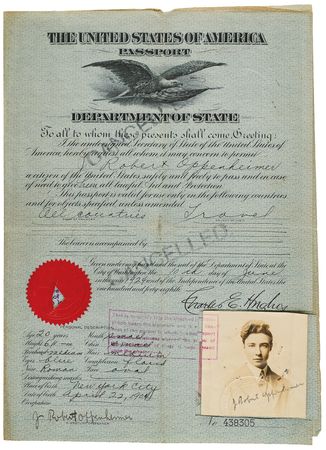 THE UNITED STATES OF AMERICA
PASSPORT
DEPARTMENT OF STATE
To all to whom these presents shall come, Greeting:
I the undersigned Secretary of State of the United States of
America, hereby request all whom it may concern to permit
J Robert Oppenheimer
a citizen of the United States safely and freely to pass and in case
of need to give him all lawful Aid and Protection.
This passport is valid for use only in the following countries
and for objects specified, unless amended.
All countries Travel
The bearer is accompanied by
CANCELLED
Given under my hand and the seal of the Department of State at the
City of Washington the day of June
in the year 1924 and of the Independence of the United States the
one hundred and forty-eighth.
Charles E. Hughes
PERSONAL DESCRIPTION
Age 20 years Mouth small
Height
Forehead medium
Eyes blue Complexion
Nose Roman Face oval
Distinguishing marks
Place of birth New York City
Date of birth April 22, 1904
Occupation
J Robert Oppenheimer
J Robert Oppenheimer
No 438305